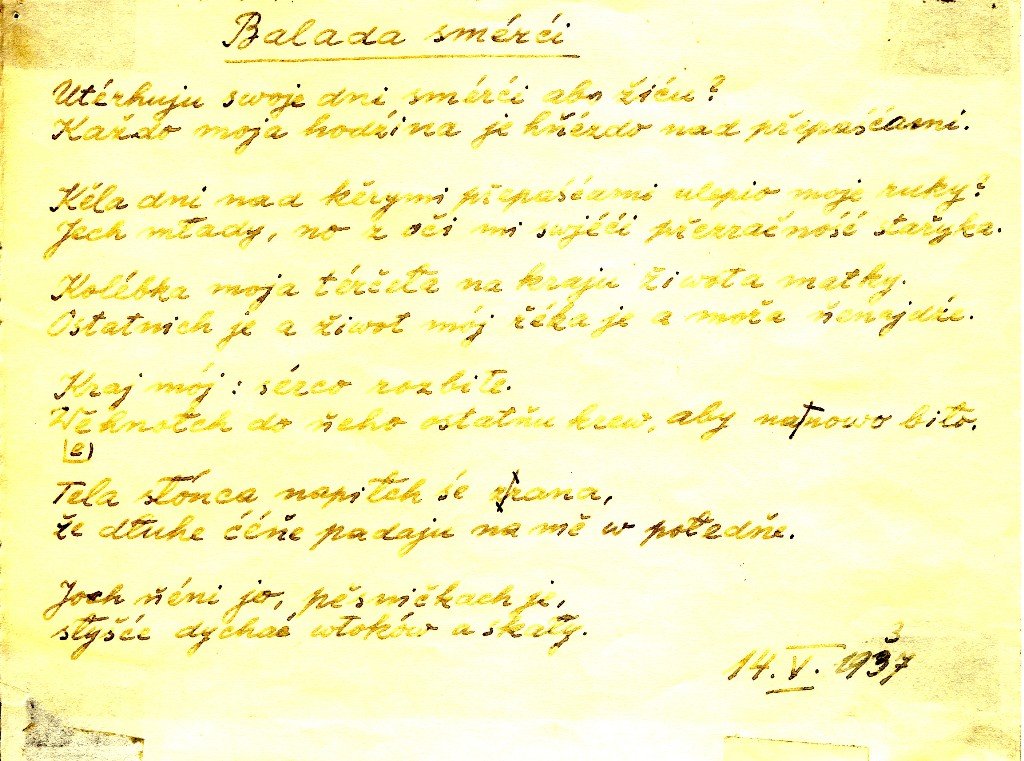 Balada smérći
Utérhuju swoje dni smérći abo žiću?
Každo moja hodźina je hńézdo nad přepaśćami.
Kéla dni nad kěrymi přepaśćami ulepio moje ruky?
Jech młady, no z oči mi swjéći přezračność stařyka.
Kolébka moja térčeła na kraju žiwota matky.
Ostatnich je a žiwot mój řéka je a moře ńenńjdźe.
Kraj mój: sérco rozbite.
Wěknołech do ńeho ostatńu krew, aby nanowo biło.
(e)
Tela słónca napiłech śe zrana,
že dłuhe ćéńe padaju na mě w połedńe.
Joch ńéni jo, pěsničkach je,
słyšéć dychać wtoków a skały.
3
14. V. 1937